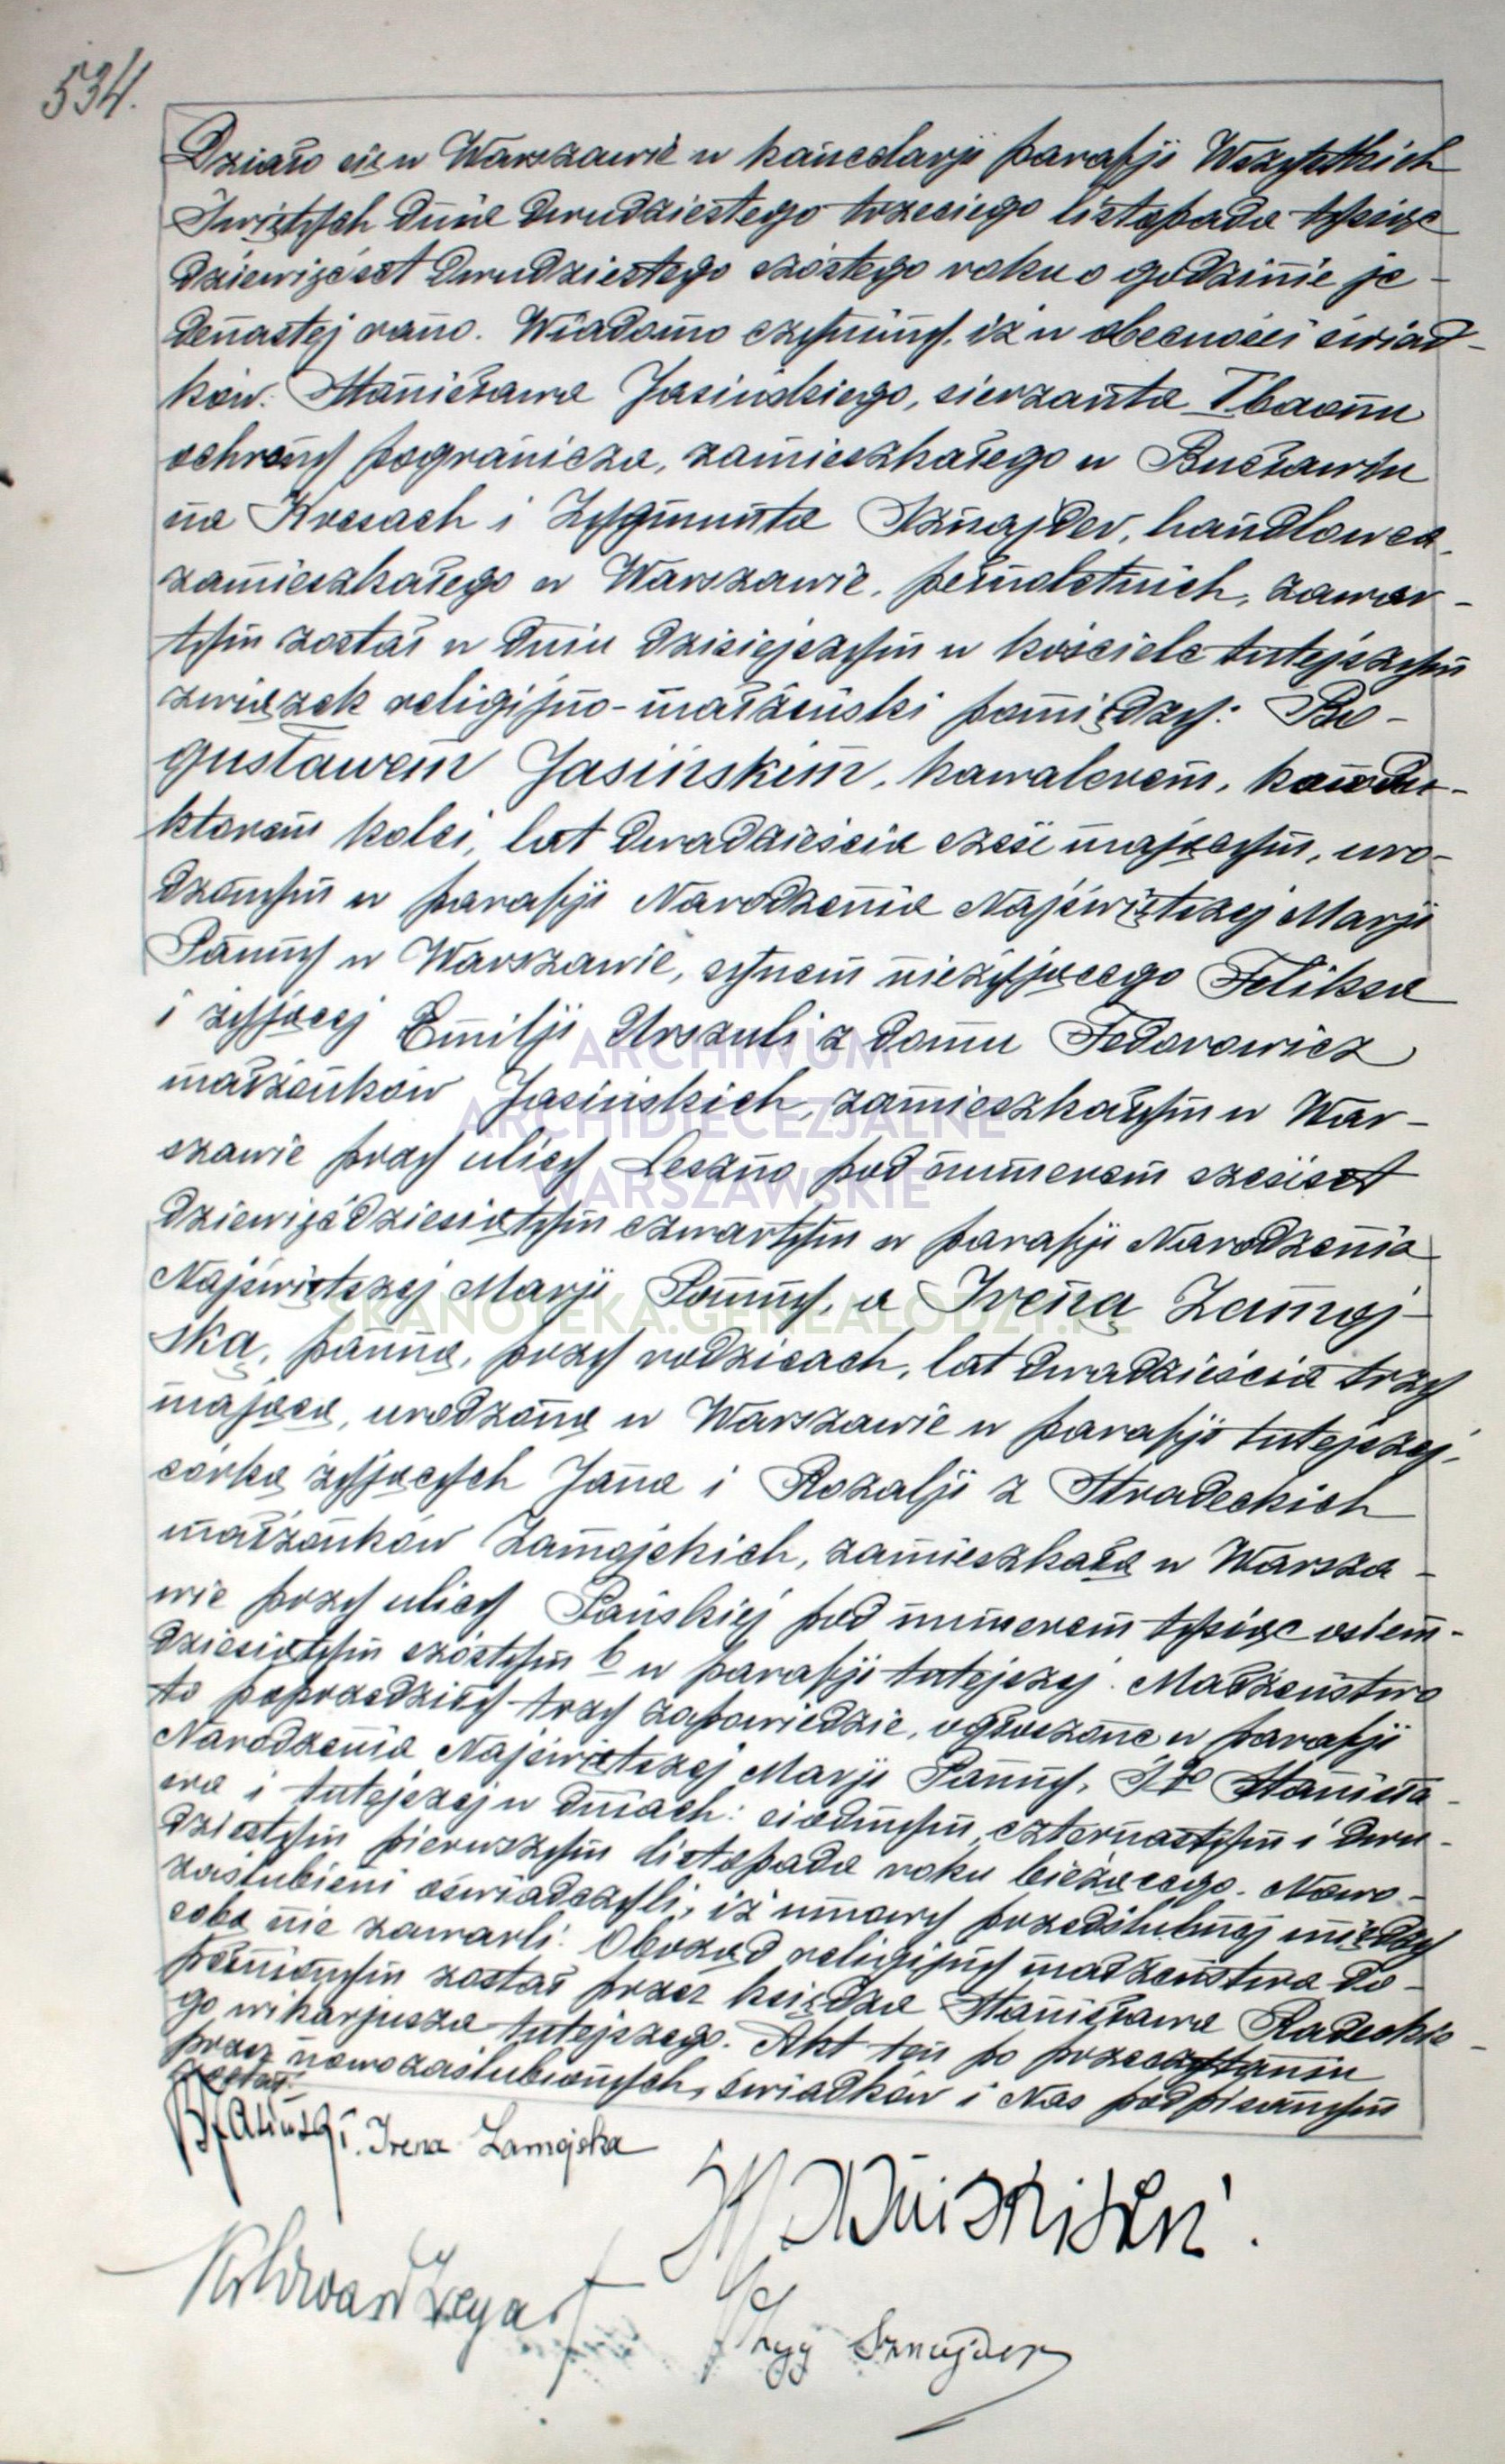 534.
Działo się w Warszawie w kancelarji parafji Wszystkich
Świętych dnia dwudziestego trzeciego listopada tysiąc
dziewięćset dwudziestego szóstego roku o godzinie je-
denastej rano. Wiadomo czynimy, iż w obecności świad-
ków: Stanisława Jasińskiego, sierżanta I baonu
ochrony pogranicza, zamieszkałego w
na Kresach i Zygmunta Sznajder, handlowca,
zamieszkałego w Warszawie, pełnoletnich, zawar-
tym został w dniu dzisiejszym w kościele tutejszym
związek religijno-małżeński pomiędzy: Bo-
gusławem Jasińskim, kawalerem, kondu-
ktorem kolei, lat dwadzieścia sześć mającym, uro-
dzonym w parafji Narodzenia Najświętszej Marji
Panny w Warszawie, synem nieżyjącego Feliksa
i żyjącej Emilji Urszuli z domu Fedorowicz
małżonków Jasińskich, zamieszkałym w War-
szawie przy ulicy Leszno pod numerem sześćset
dziewięćdziesiątym czwartym w parafji Narodzenia
Najświętszej Marji Panny, a Ireną Zamoj-
ską, panną, przy rodzicach, lat dwadzieścia trzy
mającą, urodzoną w Warszawie w parafji tutejszej,
córką żyjących Jana i Rozalji z Stradeckich
małżonków Zamojskich, zamieszkałą w Warsza-
wie przy ulicy Pańskiej pod numerem tysiąc osiem-
dziesiątym szóstym b w parafji tutejszej. Małżeństwo
to poprzedziły trzy zapowiedzie, ogłoszone w parafji
Narodzenia Najświętszej Marji Panny, Śgo Stanisła-
wa i tutejszej w dniach: siódmym, czternastym i dwu-
dziestym pierwszym listopada roku bieżącego. Nowo-
zaślubieni oświadczyli, iż umowy przedślubnej między
sobą nie zawarli. Obrzęd religijny małżeństwa do-
pełnionym został przez księdza Stanisława Radeckie-
go wikarjusza tutejszego. Akt ten po przeczytaniu
przez nowozaślubionych, świadków i Nas podpisanym
został.
BJasiński. Irena Zamojska
Zyg Sznajder
ARCHIWUM
ARCHIDIECEZJALNE
WARSZAWSKIE
SKANOTEKA.GENEALODZY.PL